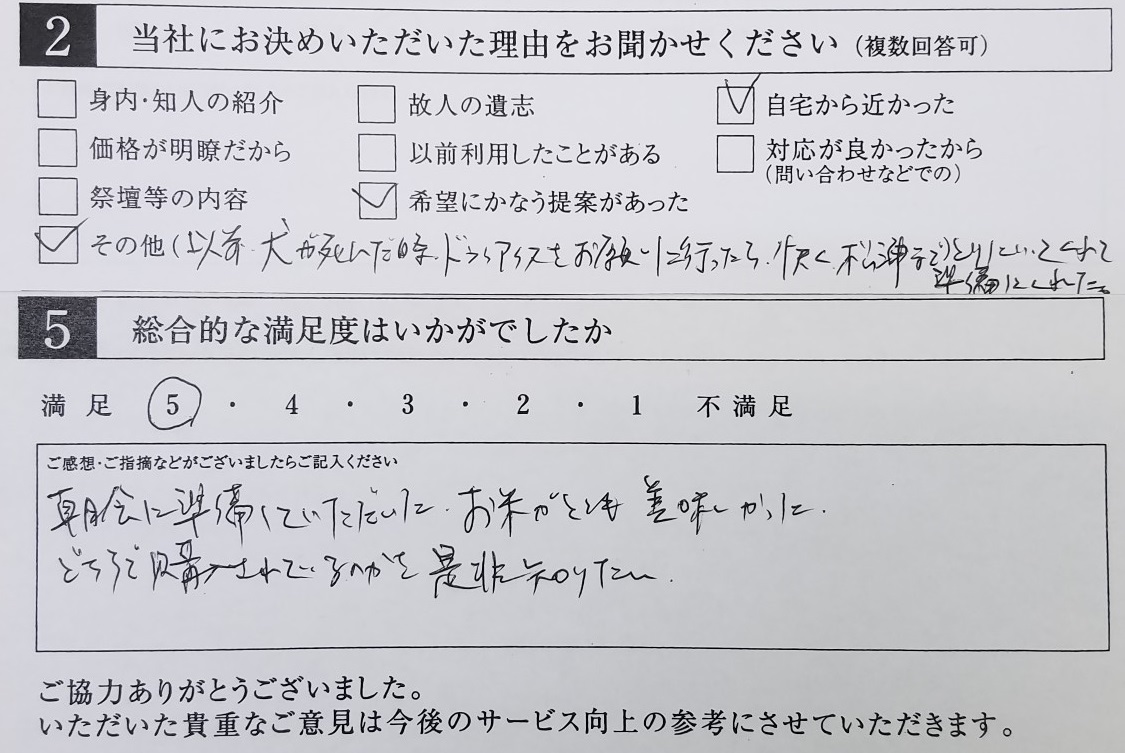 2 当社にお決めいただいた理由をお聞かせください（複数回答可）
身内・知人の紹介 故人の遺志 自宅から近かった
価格が明瞭だから 以前利用したことがある 対応が良かったから
（問い合わせなどでの）
祭壇等の内容 希望にかなう提案があった
その他（以前、犬が死んだ時、ドライアイスをお願いに行ったら、快く、松神子でとりにいってくれて
準備してくれた。
5 総合的な満足度はいかがでしたか
満足 5 ・ 4 ・ 3 ・ 2 ・ 1 不満足
ご感想・ご指摘などがございましたらご記入ください
朝食に準備していただいた、お米がとても美味しかった.
どちらで購入されているのかを是非知りたい.
ご協力ありがとうございました。
いただいた貴重なご意見は今後のサービス向上の参考にさせていただきます。